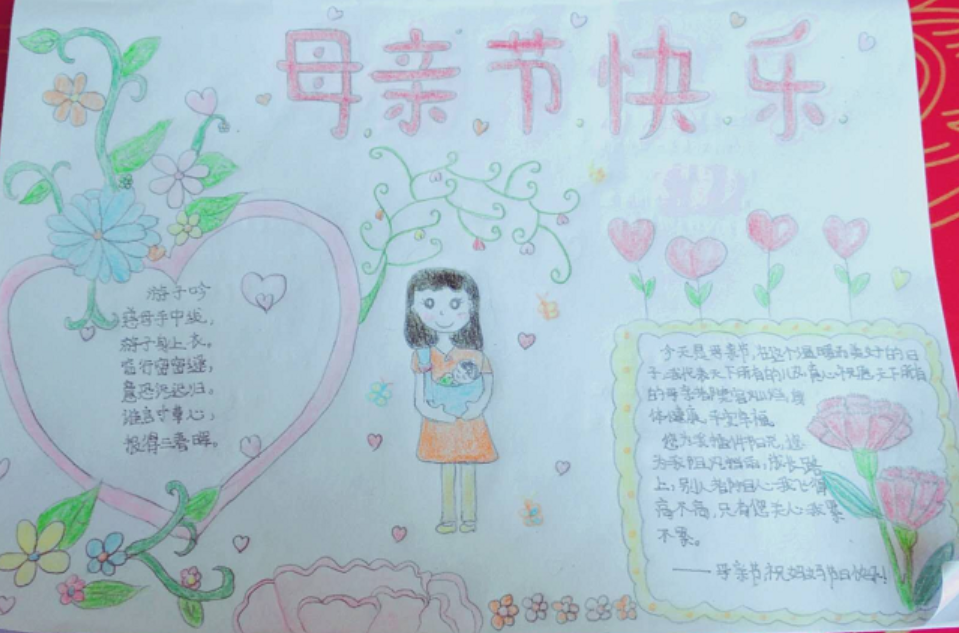 母亲节快乐
游子吟
慈母手中线，
游子身上衣。
临行密密缝，
意恐迟迟归。
谁言寸草心，
报得三春晖。
今天是母亲节，在这个温暖而美好的日
子，我代表天下所有的儿女真心祝愿天下所有
的母亲
体健康，平安幸福
您为我
为我阻风挡雨，成长路
上，别人都关心我飞得
高不高，只有您关心我累
不累。
——母亲节，祝妈妈节日快乐！